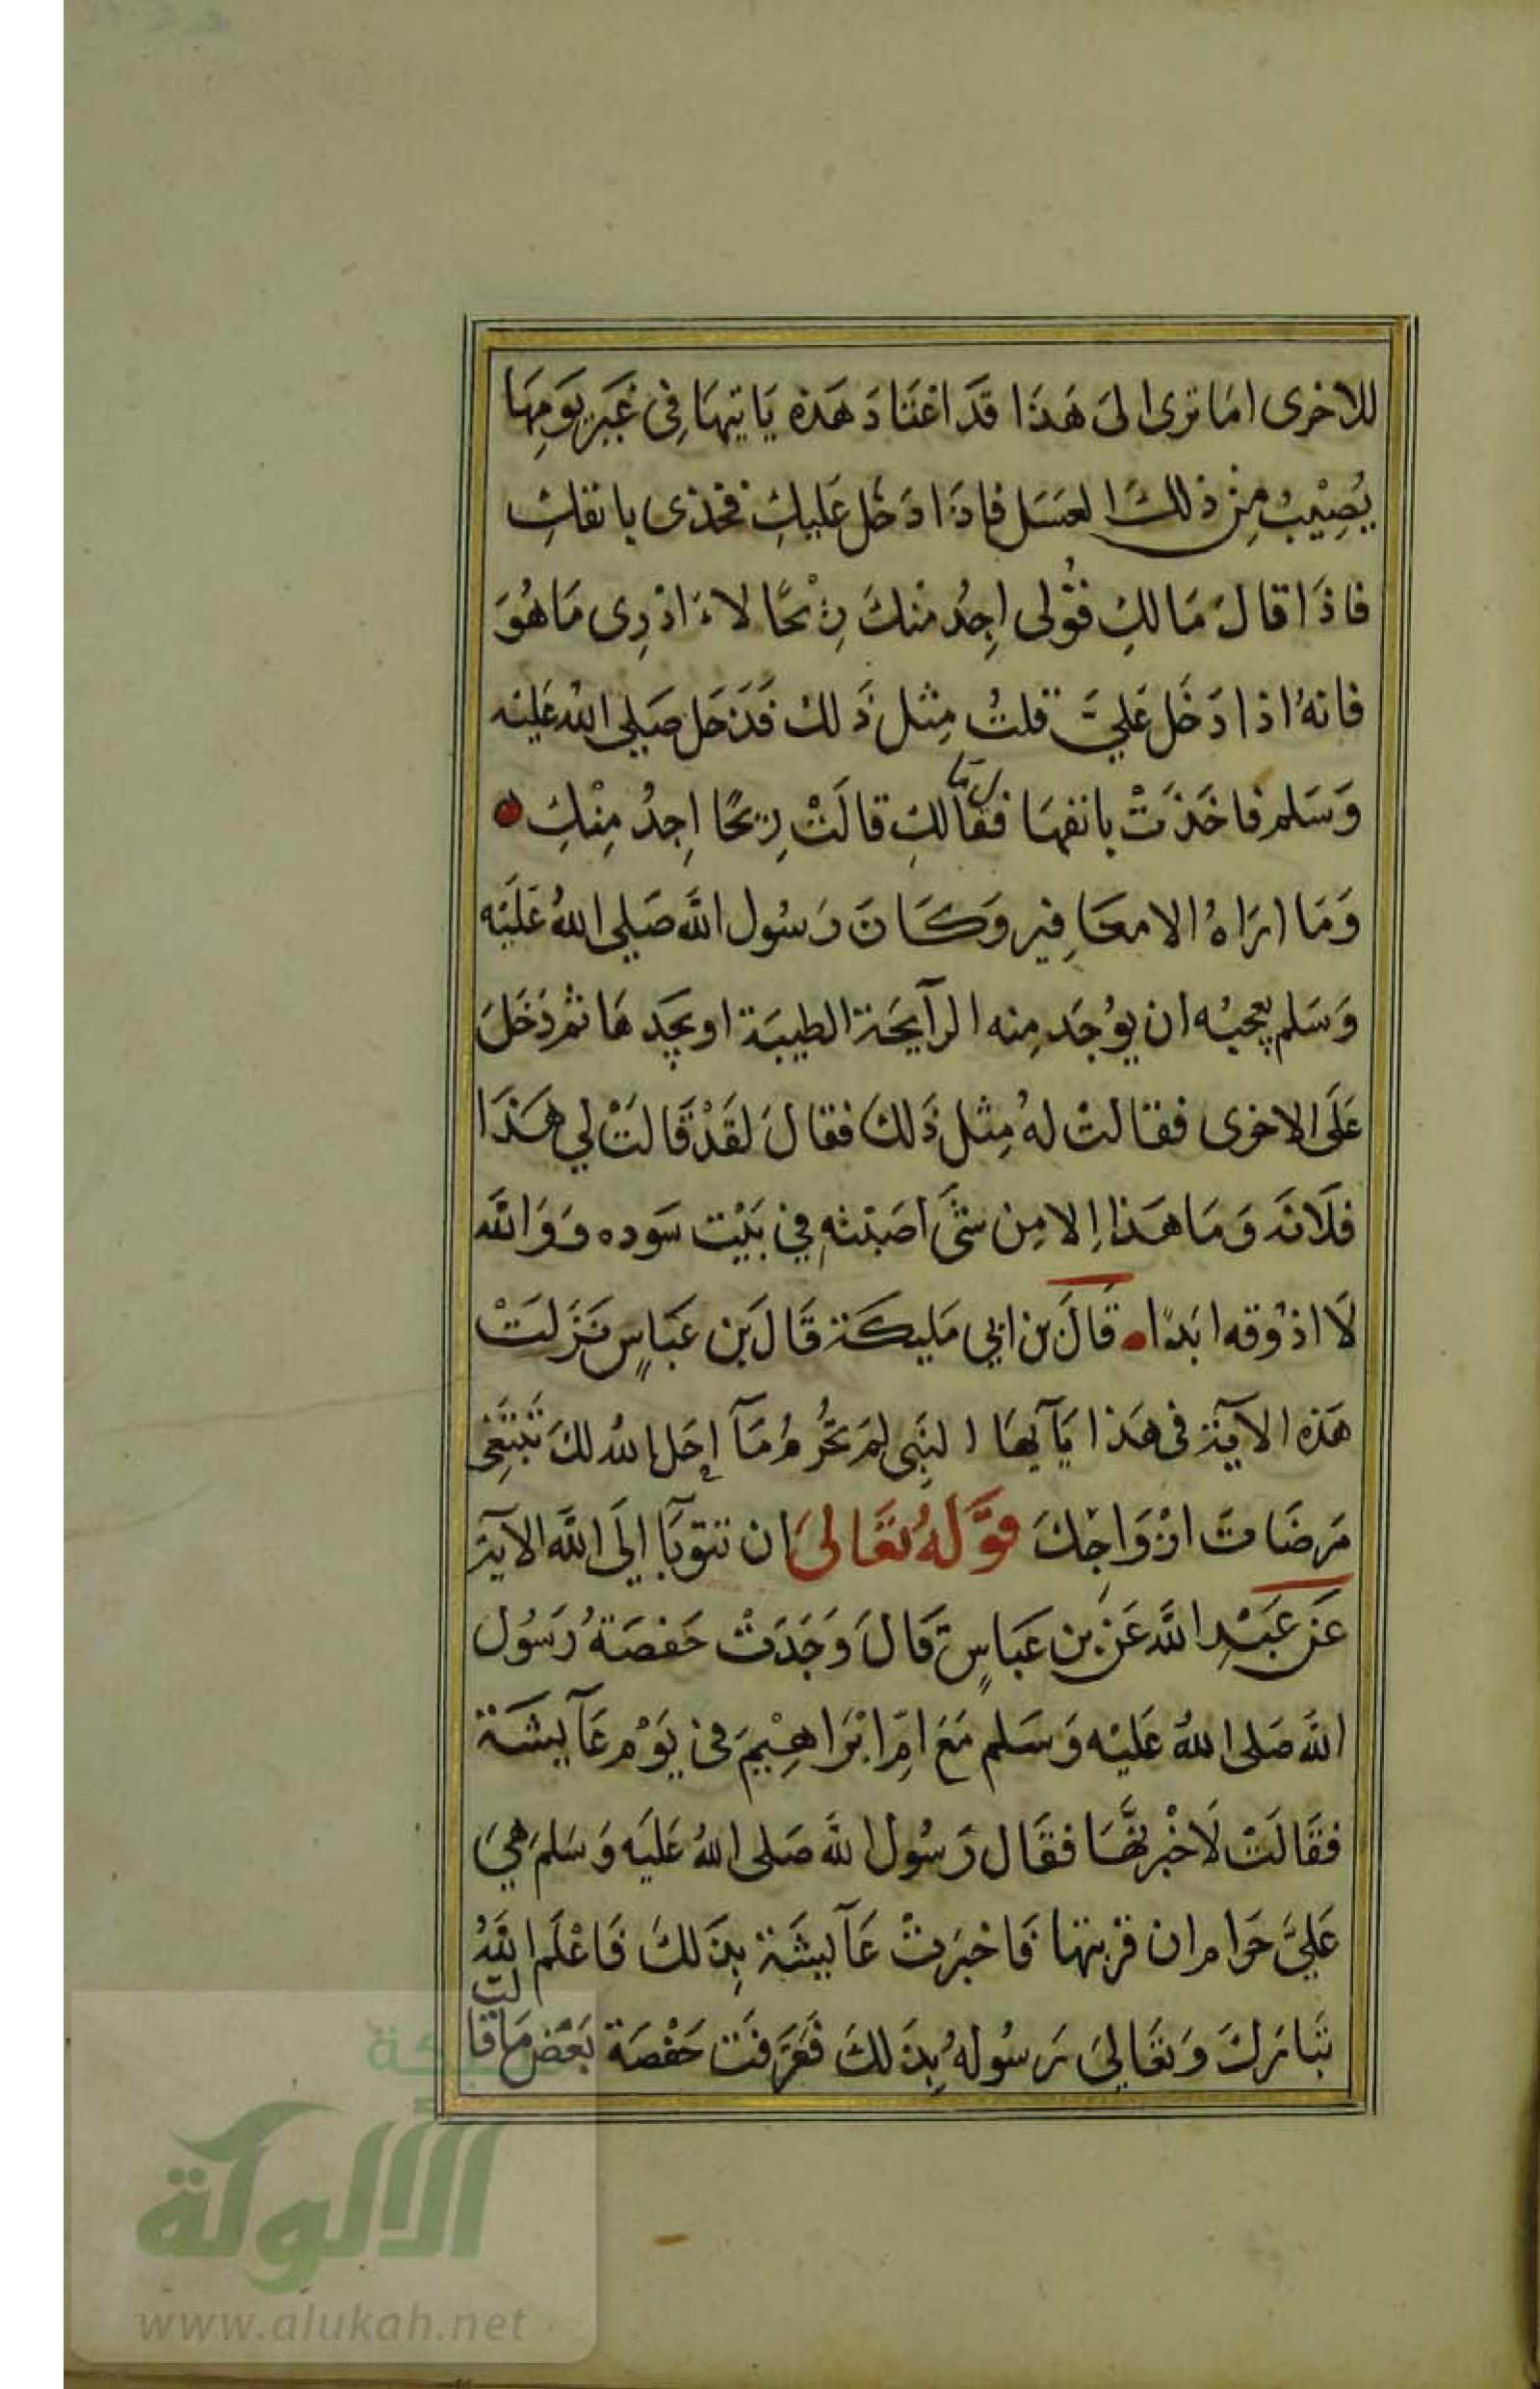 للاخرى اما ترى الى هَذا قد اعْتَاد هَذه يَاتيهَا فِى غَير يَومِهَا
يُصِيْبُ مِنْ ذلكَ العسَل فاذَا دَخَل عَليكِ فخذى بانفكِ
فاذَا قالَ مَا لكِ فقُولى اجِدُ منْكَ رِيْحًا لاءَ ادْرِى مَا هُوَ
فانهُ اذا دَخَل عَليَّ قلتُ مِثل ذَلك فَدَخَل صَلى اللهُ عَليْه
وَسَلم فاخَذَتْ بانفهَا فقال ما لكِ قالَتْ رِيْحًا اجِدُ مِنْكِ
وَمَا ارَاهُ الا مغَافِير وَكَانَ رَسُول اللّه صَلى اللهُ عَلَيْه
وَسَلم يُعجبُه ان يُوْجَد مِنه الرآيحَة الطيبَة او يجِدهَا ثمْ دَخَلَ
عَلَى الاخرى فقالتْ لهُ مِثل ذَلكَ فقالَ لقَدْ قَالَتْ لي هَذَا
فلَانَه وَمَا هَذا اِلا مِن شئَ اصَبْتهِ فِي بَيْت سَوده وَوَاللّه
لَا اذُوقه ابَدًا قَالَ بن ابي مَليكَة قَالَ بن عَبَاسٍ نَزَلَتْ
هَذه الآيَة فى هَذا يَآيهَا النبِى لمَ تحُرمُ مَآ اِحَل اللهُ لكَ تَبْتَغِى
مَرضَاتَ ازْوَاجِكَ قوَّلهُ تعَالىَ ان تتوبَا اِلَى اللّه الآية
عَن عَبْدِ اللّه عَن بن عَبَاسٍ قَالَ وَجَدَتْ حَفصَةُ رَسُول
اللّه صَلى اللهُ عَليْه وَسَلم مَعَ امِّ ابْرَاهِيْمَ فى يَوْم عَآيشَة
فقَالَتْ لَاخْبرنَّهَا فقَال رَسُول اللّه صَلى اللهُ عَليَه وَسَلمَ هِيَ
عَليَّ حَرام ان قربتها فَاخبَرَتْ عَآيشَة بِذَلكَ فَاعْلَم اللّهُ
تبَارَكَ وَتعَاليَ رَسُولهُ بِذَلكَ فَعَرَفَتْ حَفْصَة بَعْض مَا قالت
شبكة
الألوكة
www.alukah.net